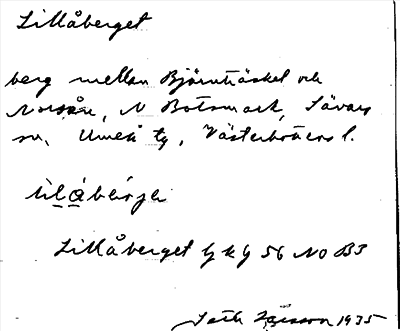 Lillåberget
berg mellan Björnträsket och
Norsån, N Botsmark, Sävars
sn, Umeå tg, Västerbottens l.
Lillåberget G k bl 56 NO B3
1935